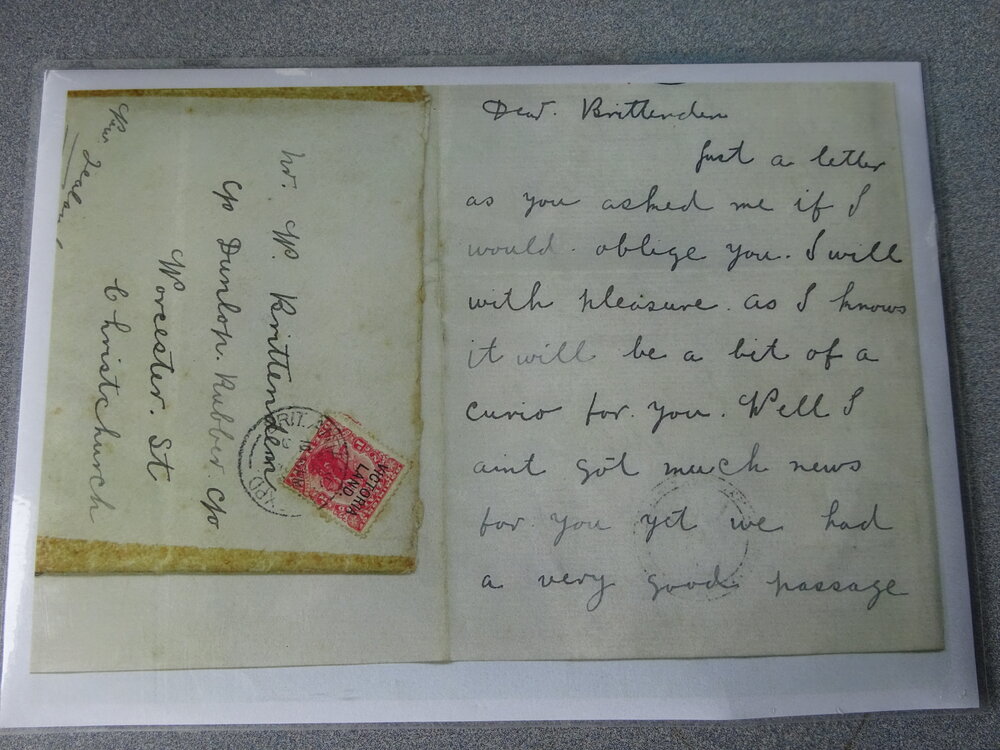 Dear. Brittenden
Just a letter
as you asked me if I
would. oblige you. I will
with pleasure. as I knows
it will be a bit of a
curio for. you. Well I
aint got much news
for you yet we had
a very good passage
Mr. W. Brittenden
C/o Dunlop. Rubber. C/o
Worcester. St
Christchurch
New Zealand
BRIT. AN
EXPD
VICTORIA
LAND.